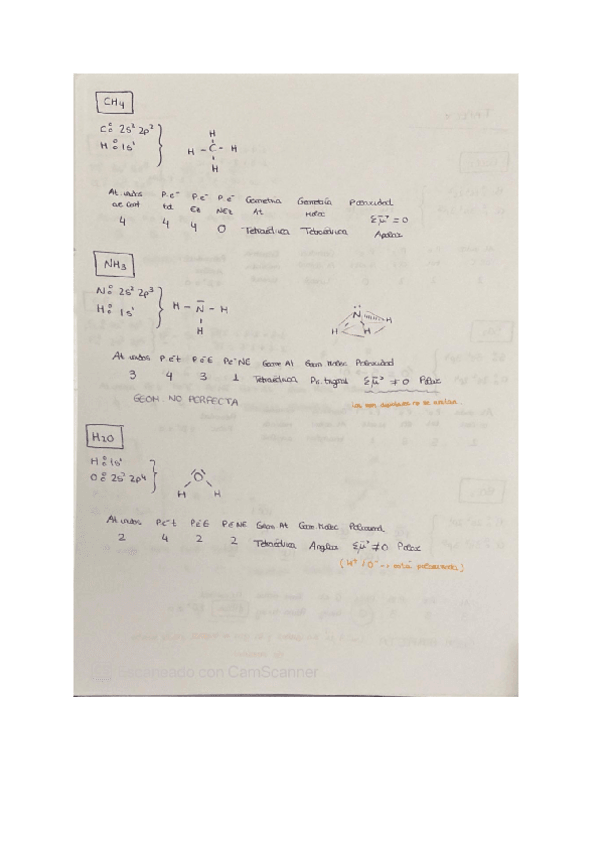 CH4
C: 2s² 2p²
H: 1s¹
H
H - C - H
H
At. unidos P.e⁻ P.e⁻ P.e⁻ Geometría Geometría Polaridad
al cent tot Enl NEnl At Molec
4 4 4 0 Tetraédrica Tetraédrica Σμ = 0
Apolar
NH3
N: 2s² 2p³
H: 1s¹
H - N - H
H
N
H H H
At unidos Pe⁻t Pe⁻E Pe⁻NE Geom At Geom Molec Polaridad
3 4 3 1 Tetraédrica Pir. trigonal Σμ ≠ 0 Polar
GEOM. NO PERFECTA
H2O
H: 1s¹
O: 2s² 2p⁴
O
H H
At unidos Pe⁻t Pe⁻E Pe⁻NE Geom At Geom Molec Polaridad
2 4 2 2 Tetraédrica Angular Σμ ≠ 0 Polar
(H⁺ / O⁻ → está
Escaneado con CamScanner